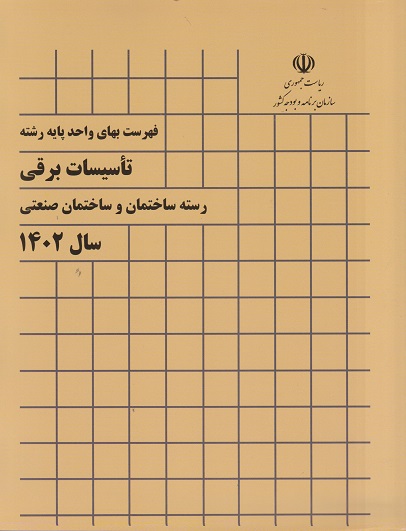 ریاست جمهوری
سازمان برنامه و بودجه کشور
فهرست بهای واحد پایه رشته
تأسیسات برقی
رسته ساختمان و ساختمان صنعتی
سال ۱۴۰۲